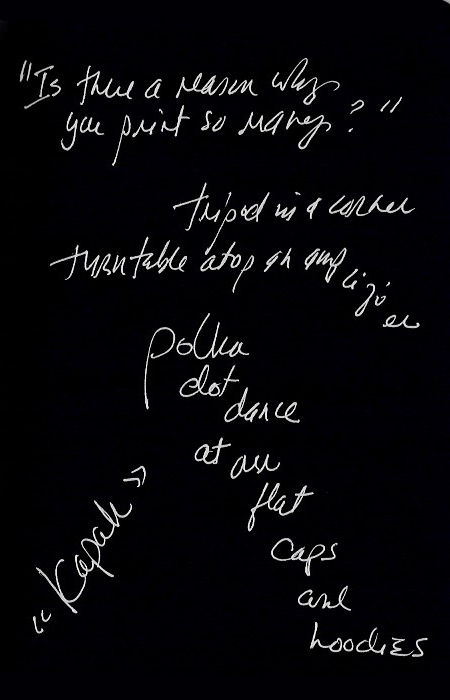 "Is there a reason why
you print so many?"
tripod in a corner
turntable atop an amp
lifi
er
polka
dot
dance
at our
flat
caps
and
hoodies
"Kapak"